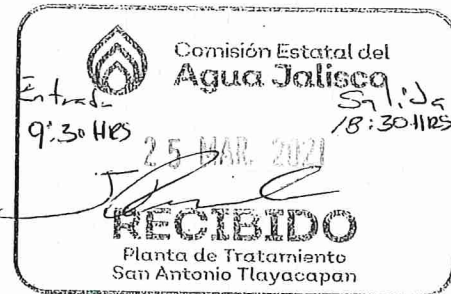 Comisión Estatal del
Agua Jalisco
Entrada
9:30 HRS
Salida
18:30 HRS
25 MAR. 2021
RECIBIDO
Planta de Tratamiento
San Antonio Tlayacapan